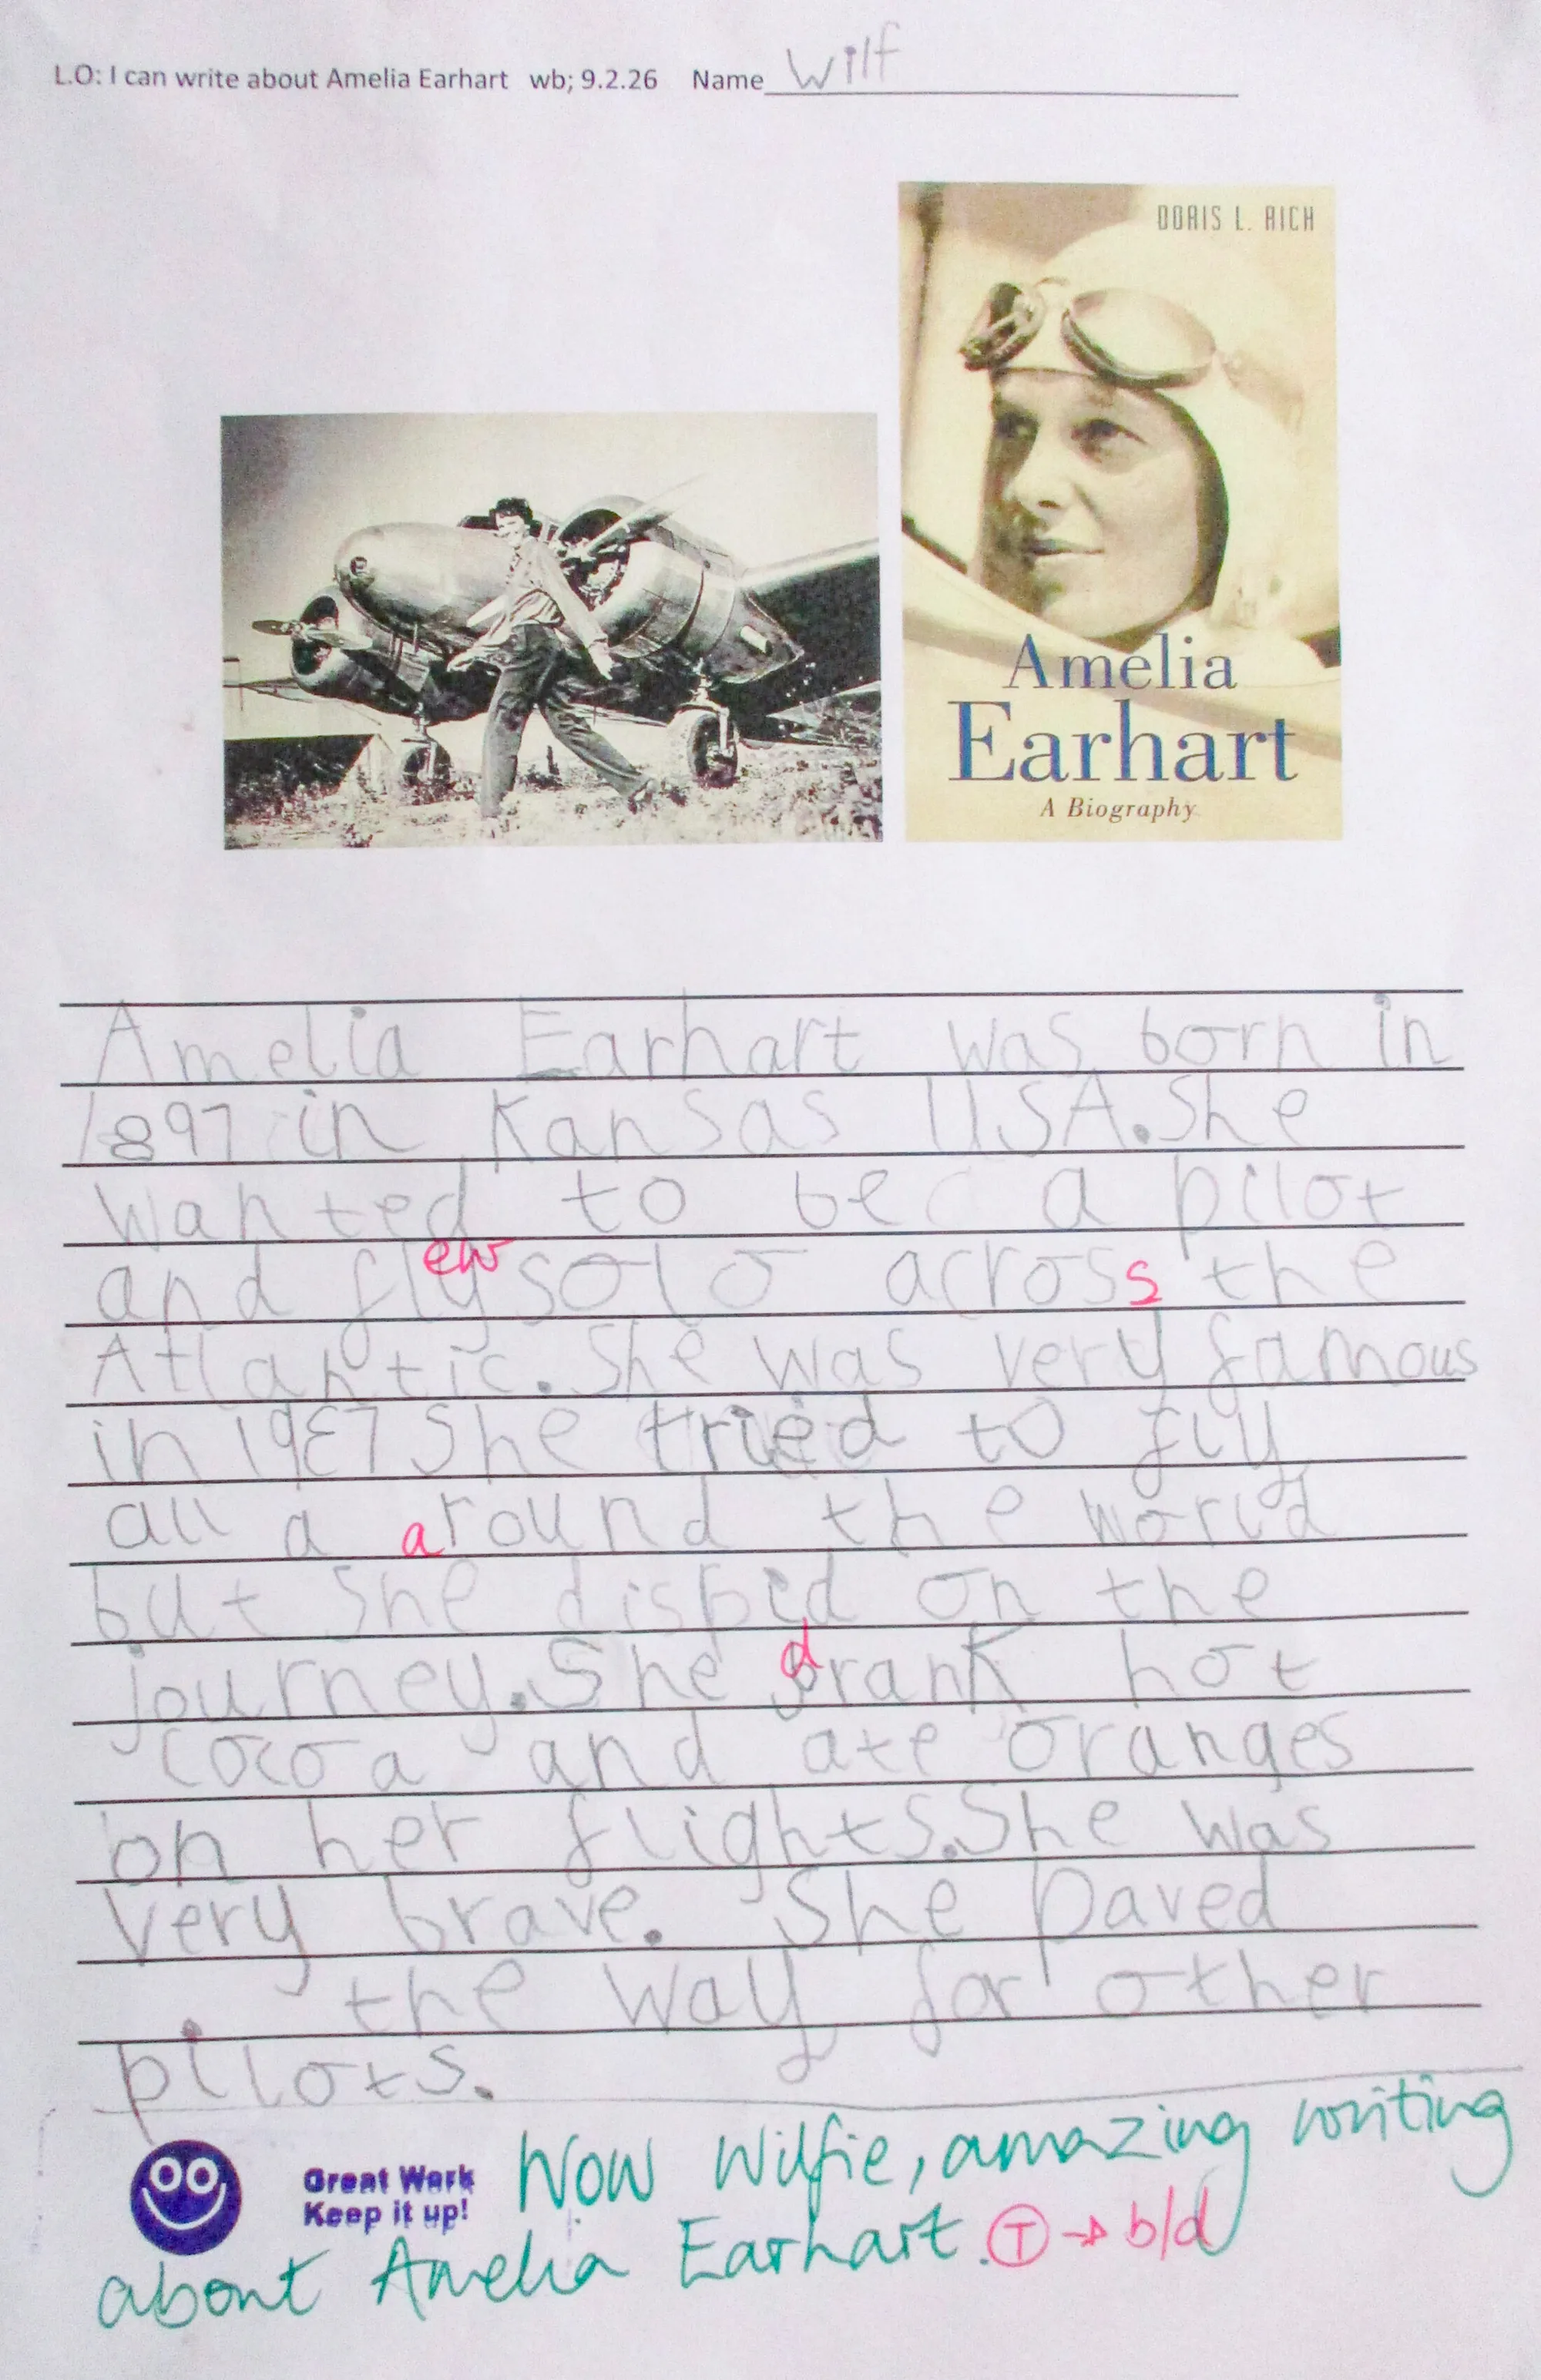 L.O: I can write about Amelia Earhart wb; 9.2.26 Name Wilf
DORIS L. RICH
Amelia
Earhart
A Biography
Amelia Earhart was born in
1897 in Kansas USA. She
wanted to be a pilot
and fly ew solo across the
Atlantic. She was very famous
in 1937 She tried to fly
all a around the world
but she on the
journey. She drank hot
cocoa and ate oranges
on her flights. She was
very brave. She paved
the way for other
pilots.
Great Work
Keep it up!
Wow Wilfie, amazing writing
about Amelia Earhart. T → b/d